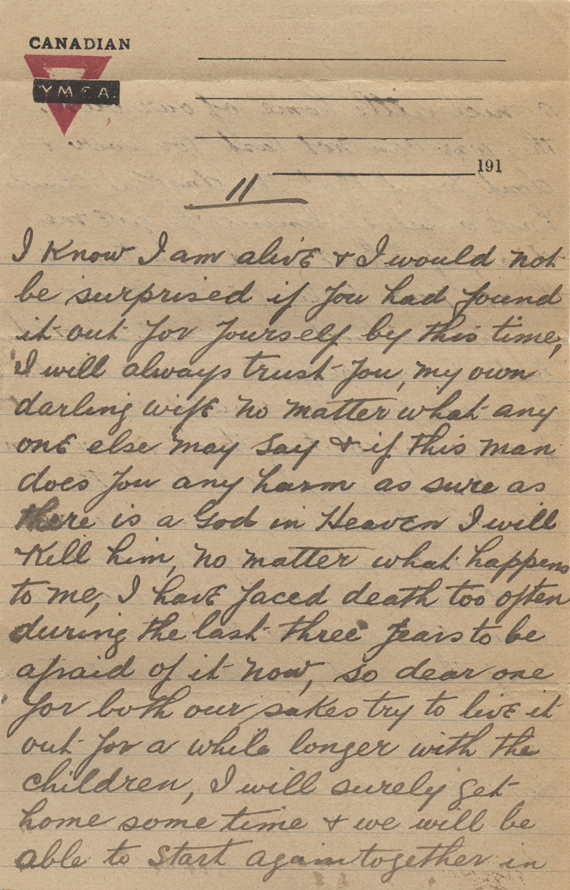 CANADIAN
YMCA
191
11
I know I am alive & I would not
be surprised if you had found
it out for yourself by this time,
I will always trust you, my own
darling wife no matter what any
one else may say & if this man
does you any harm as sure as
there is a God in Heaven I will
Kill him, no matter what happens
to me, I have faced death too often
during the last three years to be
afraid of it now, so dear one
for both our sakes try to live it
out for a while longer with the
children, I will surely get
home some time & we will be
able to start again together in